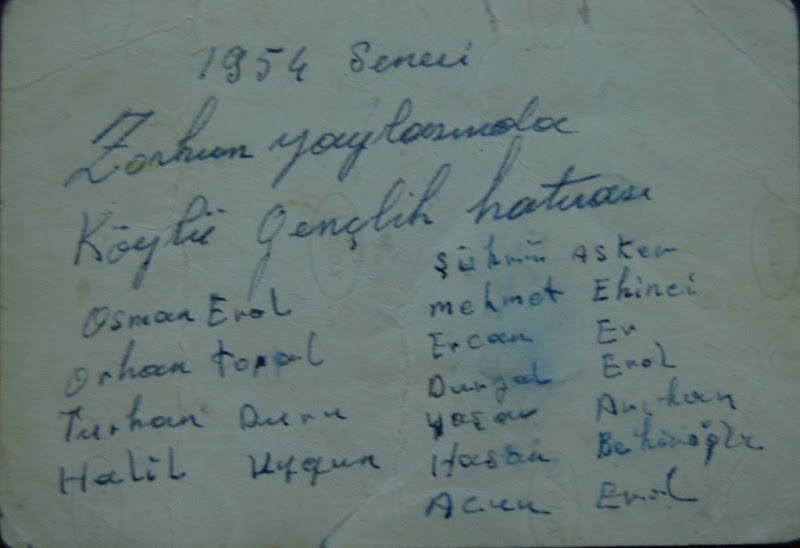 1954 Senesi
Zorkun yaylasında
Köylü Gençlik hatırası
Osman Erol
Orhan Topal
Turhan Duru
Halil Uygun
Şükrü Asker
mehmet Ekinci
Ercan Er
Erol
Yaşar
Hasan Bekiroğlu
Acun Erol